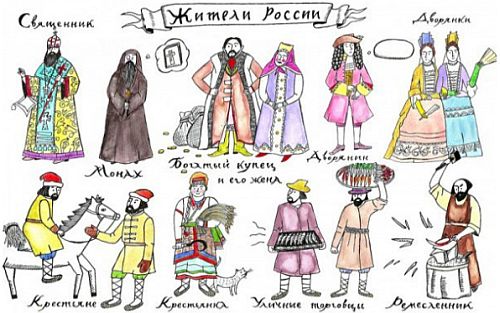 Жители России
Священник
Дворянки
Монах
Богатый купец
и его жена
Дворянин
Крестьяне
Крестьянка
Уличные торговцы
Ремесленник